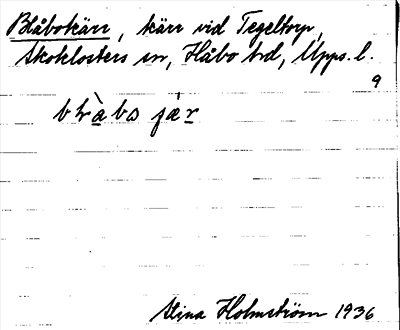 Blåbokärr, kärr vid Tegeltorp,
Skoklosters sn, Håbo hd, Upps. l.
9
Stina Holmström 1936